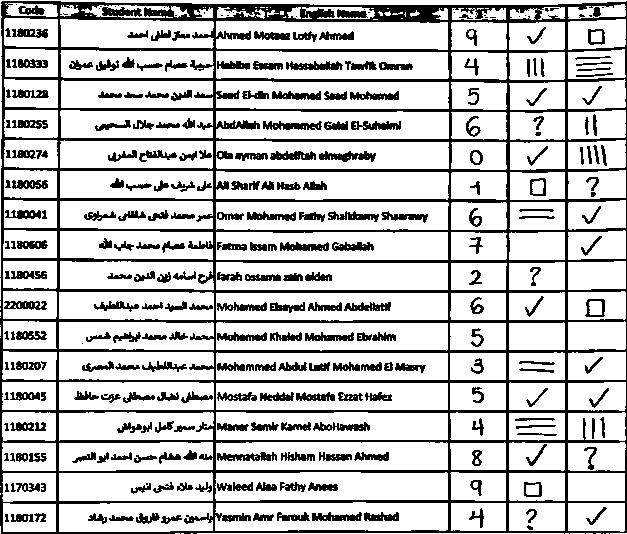 Code Student Name English Name 1 2 3
1180236 احمد معتز لطفى احمد Ahmed Motaaz Lotfy Ahmed 9 ✓ □
1180333 حبيبة عصام حسب الله توفيق عمران Habiba Essam Hassaballah Tawfik Omran 4 ||| ☰
1180128 سعد الدين محمد سعد محمد Saad El-din Mohamed Saad Mohamed 5 ✓ ✓
1180255 عبد الله محمد جلال السحيمى AbdAllah Mohammed Galal El-Suhaimi 6 ? ||
1180274 علا ايمن عبدالفتاح المغربى Ola ayman abdelftah elmaghraby 0 ✓ ||||
1180056 على شريف على حسب الله Ali Sharif Ali Hasb Allah 1 □ ?
1180041 عمر محمد فتحى شعراوى Omar Mohamed Fathy Shaarawy 6 = ✓
1180606 فاطمة عصام محمد جاب الله Fatma Issam Mohamed Gaballah 7 ✓
1180456 فرح اسامه زين الدين محمد farah ossama zain elden 2 ?
2200022 محمد السيد احمد عبداللطيف Mohamed Elsayed Ahmed Abdellatif 6 ✓ □
1180552 محمد خالد محمد ابراهيم شمس Mohamed Khaled Mohamed Ebrahim 5
1180207 محمد عبداللطيف محمد المصرى Mohammed Abdul Latif Mohamed El Masry 3 = ✓
1180045 مصطفى نضال مصطفى عزت حافظ Mostafa Neddal Mostafa Ezzat Hafez 5 ✓ ✓
1180212 منار سمير كامل ابوهواش Manar Samir Kamel AboHawash 4 ☰ |||
1180155 منه الله هشام حسن احمد ابو النصر Mennatallah Hisham Hassan Ahmed 8 ✓ ?
1170343 وليد علاء فتحى انيس Waleed Alaa Fathy Anees 9 □
1180172 ياسمين عمرو فاروق محمد رشاد Yasmin Amr Farouk Mohamed Rashad 4 ? ✓